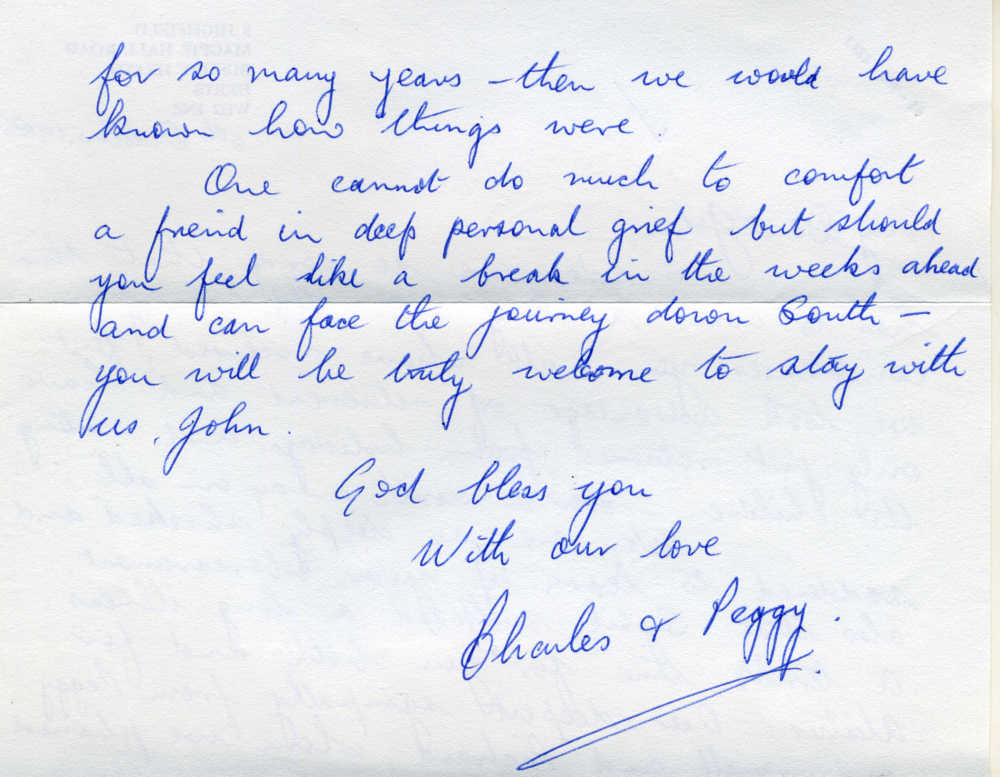 for so many years - then we would have
known how things were.
One cannot do much to comfort
a friend in deep personal grief but should
you feel like a break in the weeks ahead
and can face the journey down South -
you will be truly welcome to stay with
us, John.
God bless you
With our love
Charles & Peggy.